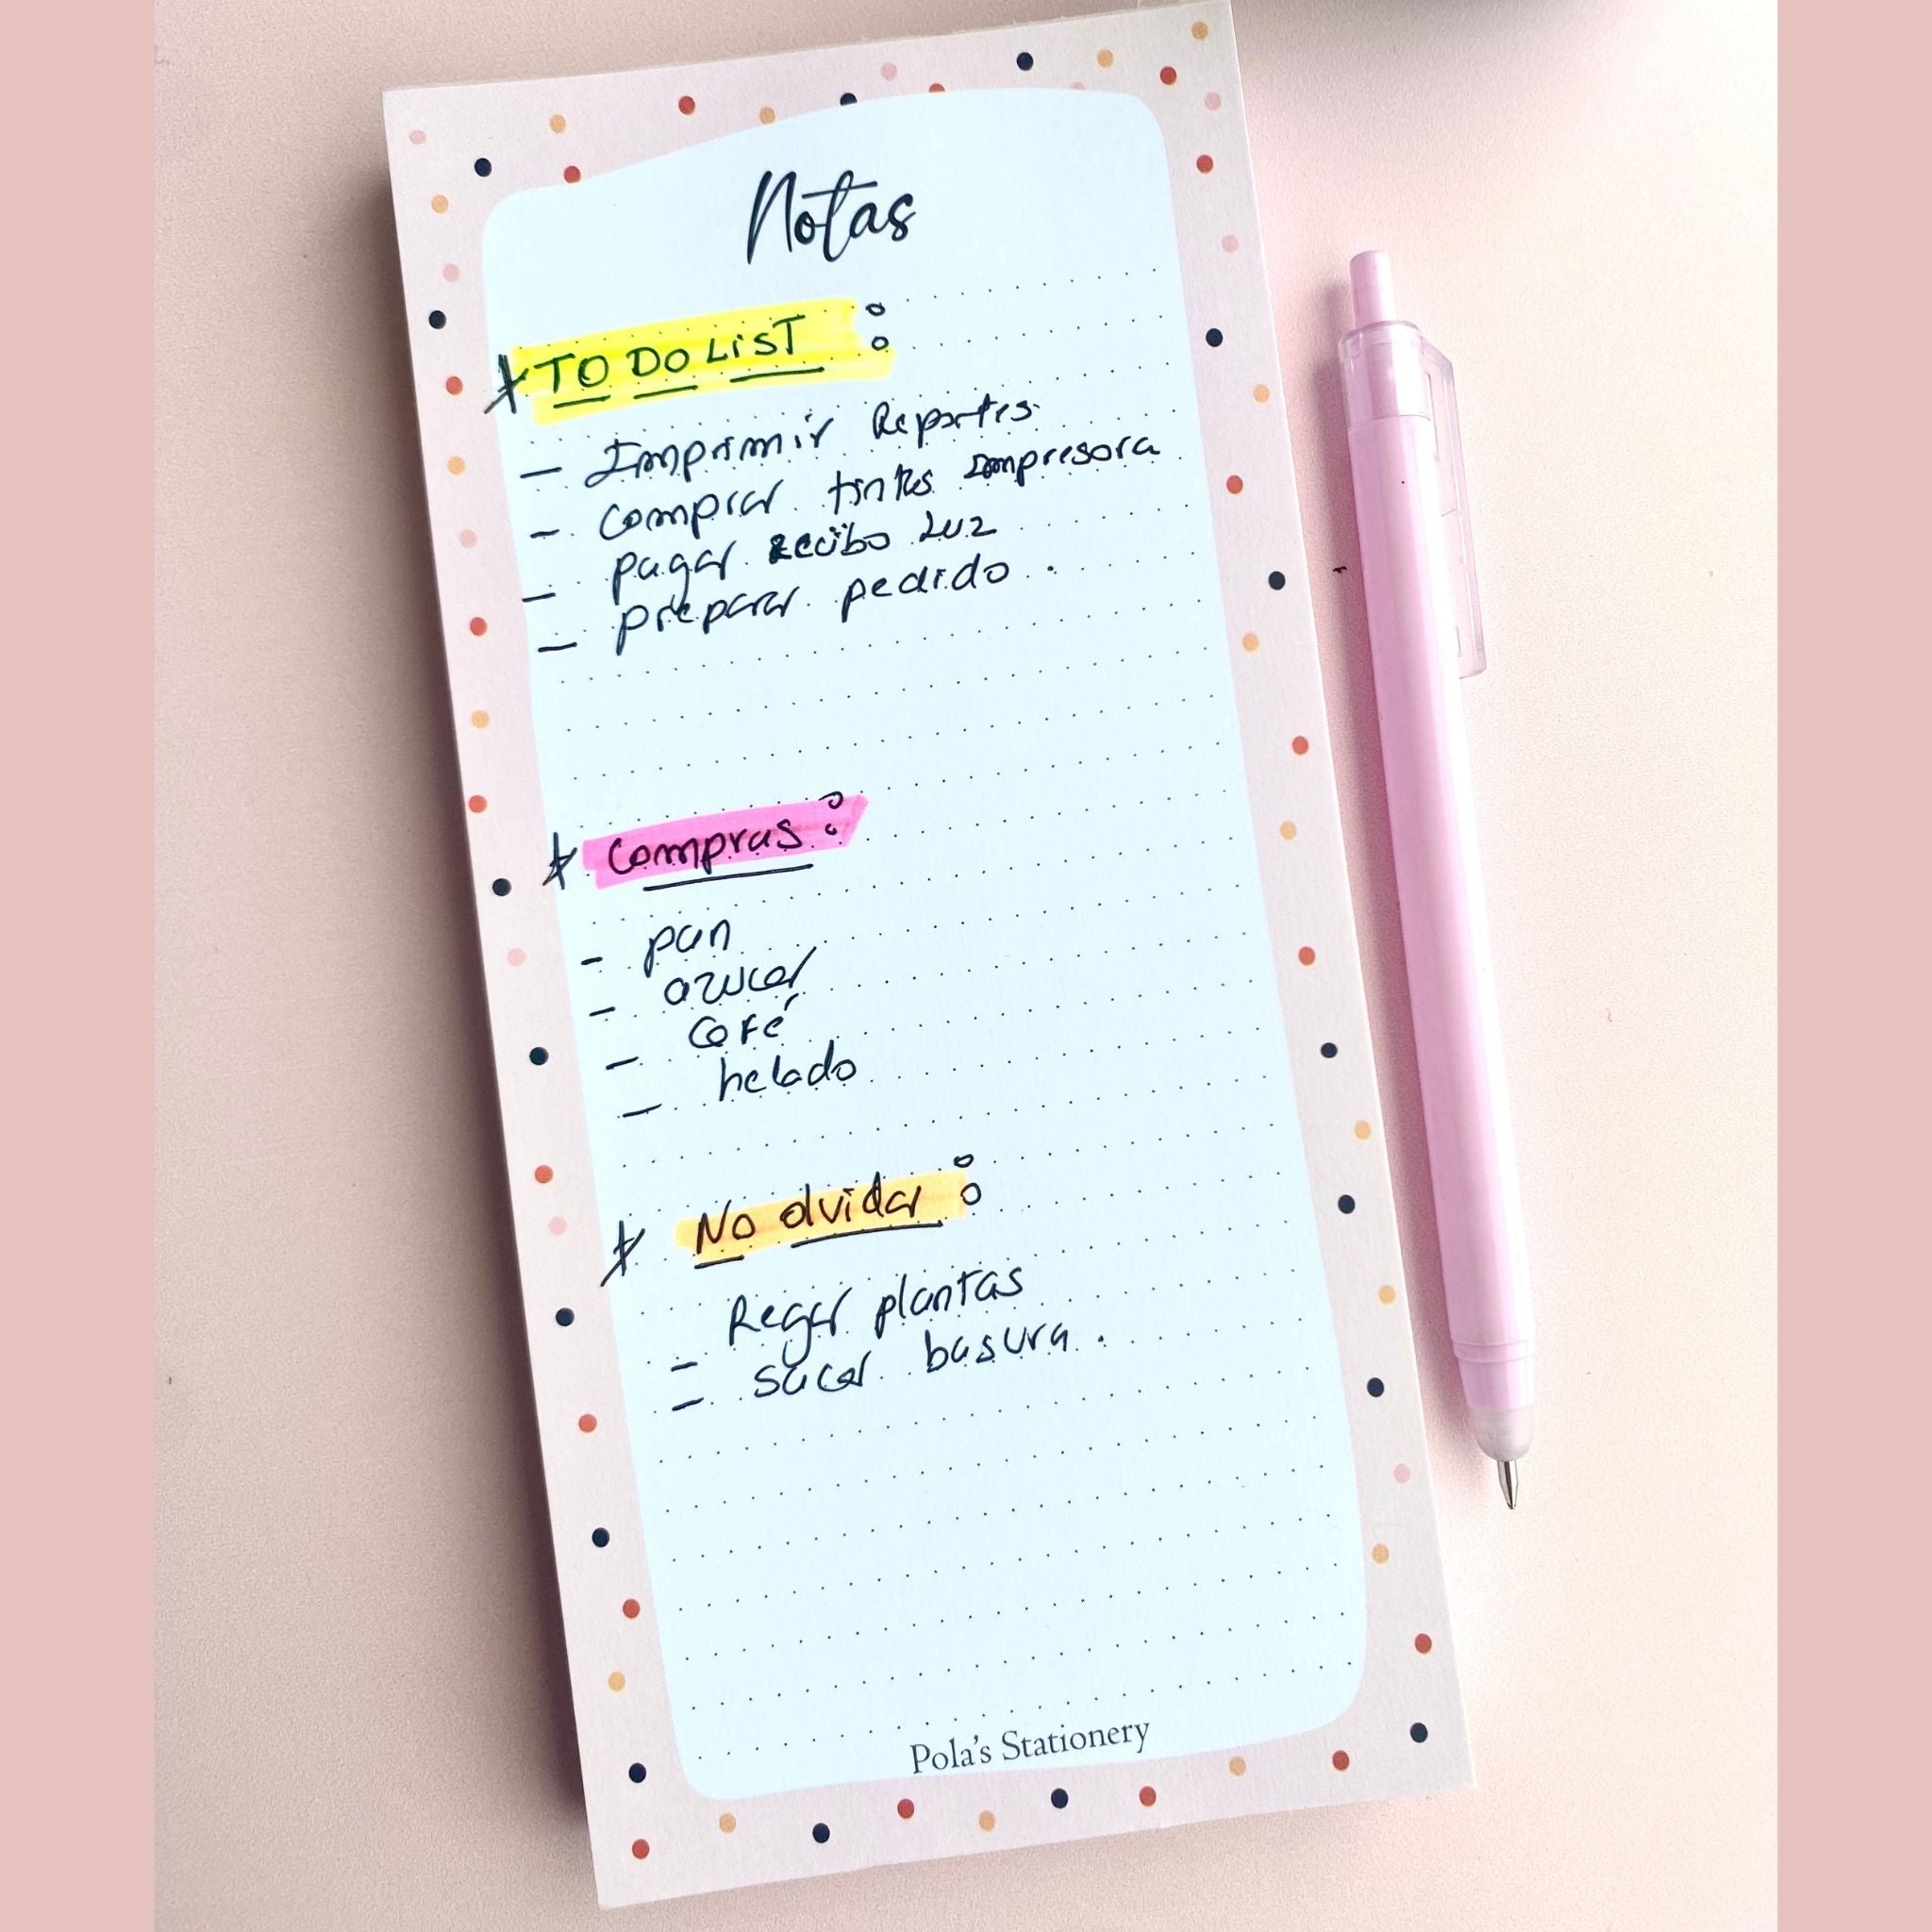 Notas
* TO DO LIST :
- Imprimir Reportes.
- Comprar tintas Impresora
- pagar Recibo Luz
- preparar pedido.
* Compras:
- pan
- azucar
- Café
- helado
* No olvidar :
- Regar plantas
- sacar basura.
Pola's Stationery